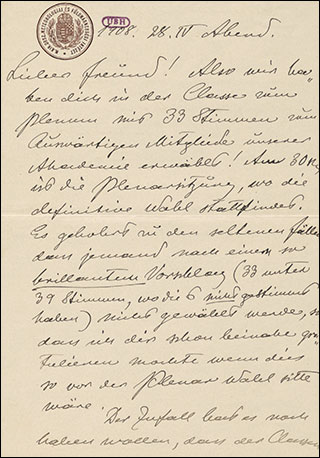 UBH
1908. 28. IV Abend.
Lieber Freund! Also wir ha-
ben dich in der Classe zum
Plenum mit 33 Stimmen zum
Auswärtigen Mitgliede unserer
Akademie erwählt! Am 30
ist die Plenarsitzung, wo die
definitive Wahl stattfindet.
Es gehoert zu den seltenen Fällen
dass jemand nach einem so
brillanten Vorschlag (33 unter
39 Stimmen, wo die 6 nicht gestimmt
haben) nicht gewählt werde, so
dass ich dir schon beinahe gra-
tulieren mochte wenn dies
so vor der Plenar Wahl Sitte
wäre.
Der Zufall hat es noch
haben wollen, dass der Classen